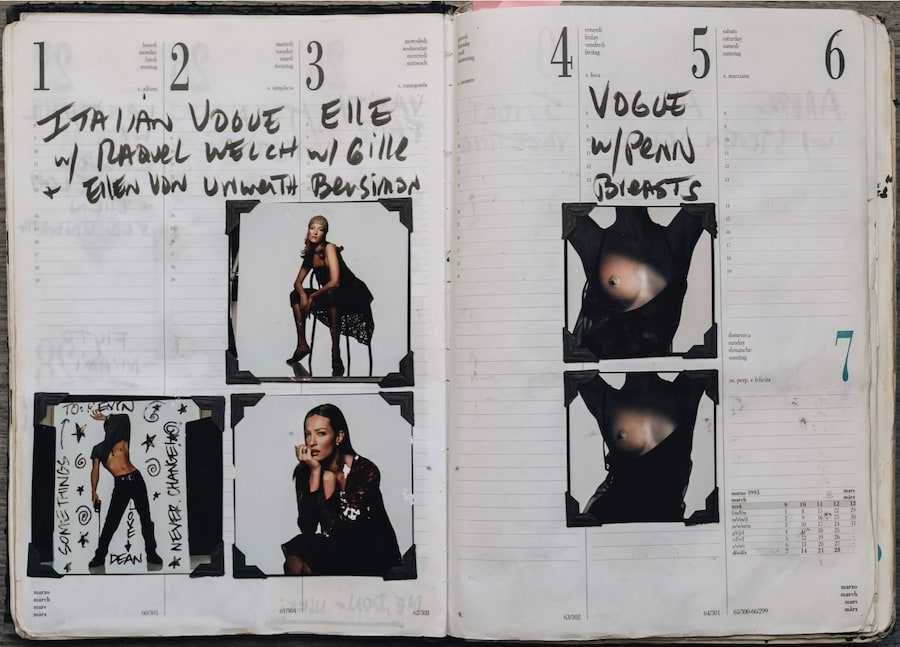 1
lunedì
monday
lundi
montag
s. albino
2
martedì
tuesday
mardi
dienstag
s. simplicio
3
mercoledì
wednesday
mercredi
mittwoch
s. cunegonda
ITALIAN VOGUE
w/ RAQUEL WELCH
+ EllEN VON UNWERTH
EllE
w/ Gille
BENSIMON
TO: KEVIN
SOME THINGS
NEVER CHANGE!
LOVE
DEAN
marzo
march
mars
märz
60/305
61/304
62/303
4
5
venerdì
friday
vendredi
freitag
s. foca
6
sabato
saturday
samedi
samstag
s. marziano
VOGUE
w/PENN
BREASTS
7
domenica
sunday
dimanche
sonntag
ss. perp. e felicita
marzo 1993
march
mars
märz
week 9 10 11 12 13
7 14 21 28
63/302
64/301
65/300-66/299
marzo
march
mars
märz